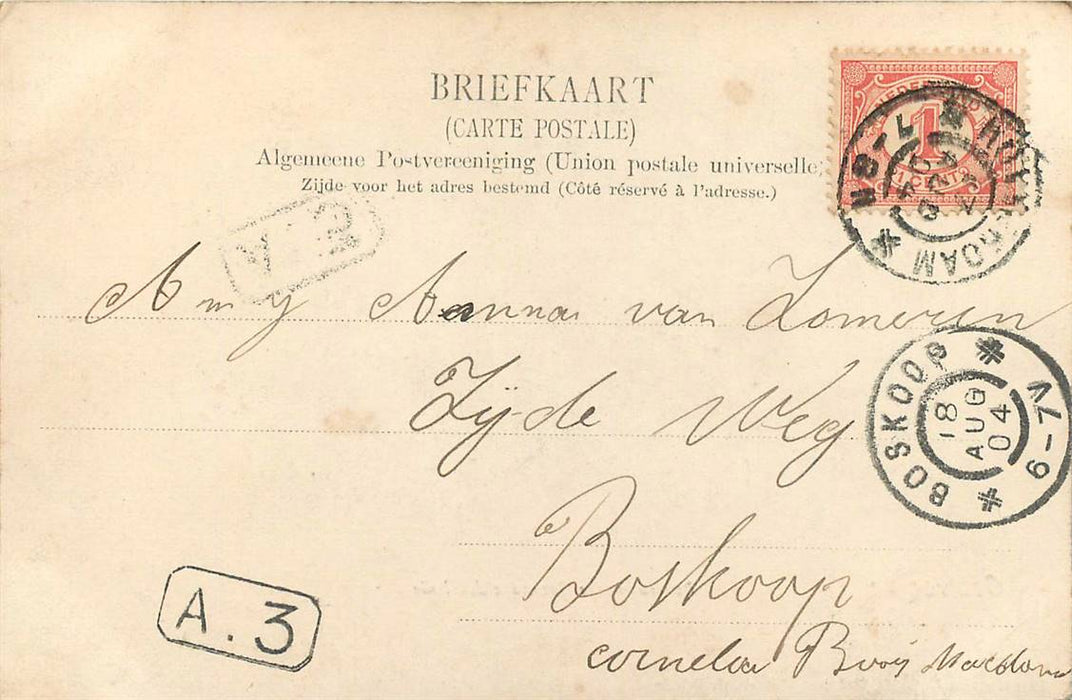 BRIEFKAART
(CARTE POSTALE)
Algemeene Postvereeniging (Union postale universelle)
Zijde voor het adres bestemd (Côté réservé à l'adresse.)
NEDERLAND
1
1 CENT
ROTTERDAM
7-8N
AUG
04
V 2
Anna van Zomeren
Zijde Weg
BOSKOOP
18 AUG 04
6-7V
Boskoop
A. 3
cornelia Booij